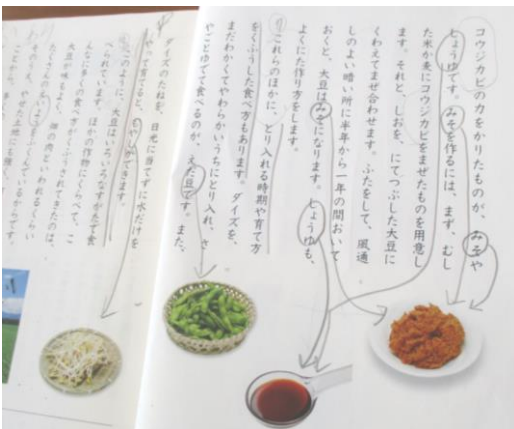 コウジカビの力をかりたものが、みそや
しょうゆです。みそを作るには、まず、むし
た米か麦にコウジカビをまぜたものを用意し
ます。それと、しおを、にてつぶした大豆に
くわえてまぜ合わせます。ふたをして、風通
しのよい暗い所に半年から一年の間おいて
おくと、大豆はみそになります。しょうゆも、
よくにた作り方をします。
これらのほかに、とり入れる時期や育て方
をくふうした食べ方もあります。ダイズを、
まだわかくてやわらかいうちにとり入れ、さ
やごとゆでて食べるのが、えだ豆です。また、
ダイズのたねを、日光に当てずに水だけを
やって育てると、もやしができます。
このように、大豆はいろいろなすがたで食
べられています。ほかの作物にくらべて、こ
んなに多くの食べ方がくふうされてきたのは、
大豆が味もよく、畑の肉といわれるくらい
たくさんのえいようをふくんでいるからです。
そのうえ、やせた土地にも強く、
ことから、多くの